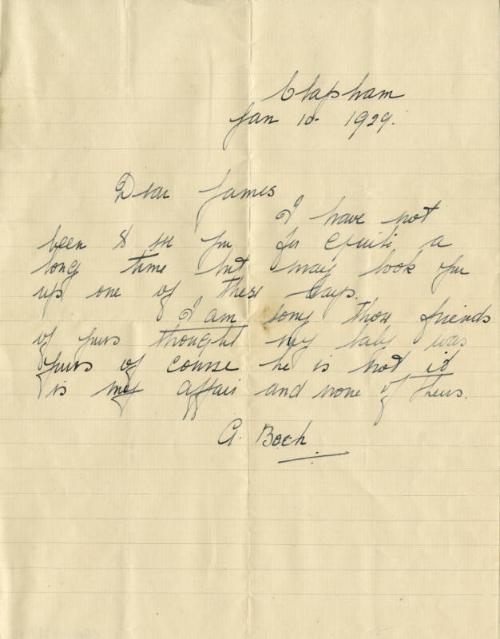 Clapham
Jan 10 1929.
Dear James
I have not
been to see you for quite a
long time but may look you
up one of these days.
I am sorry thou friends
of yours thought my baby was
yours of course he is not it
is my affair and none of theirs.
A. Boch